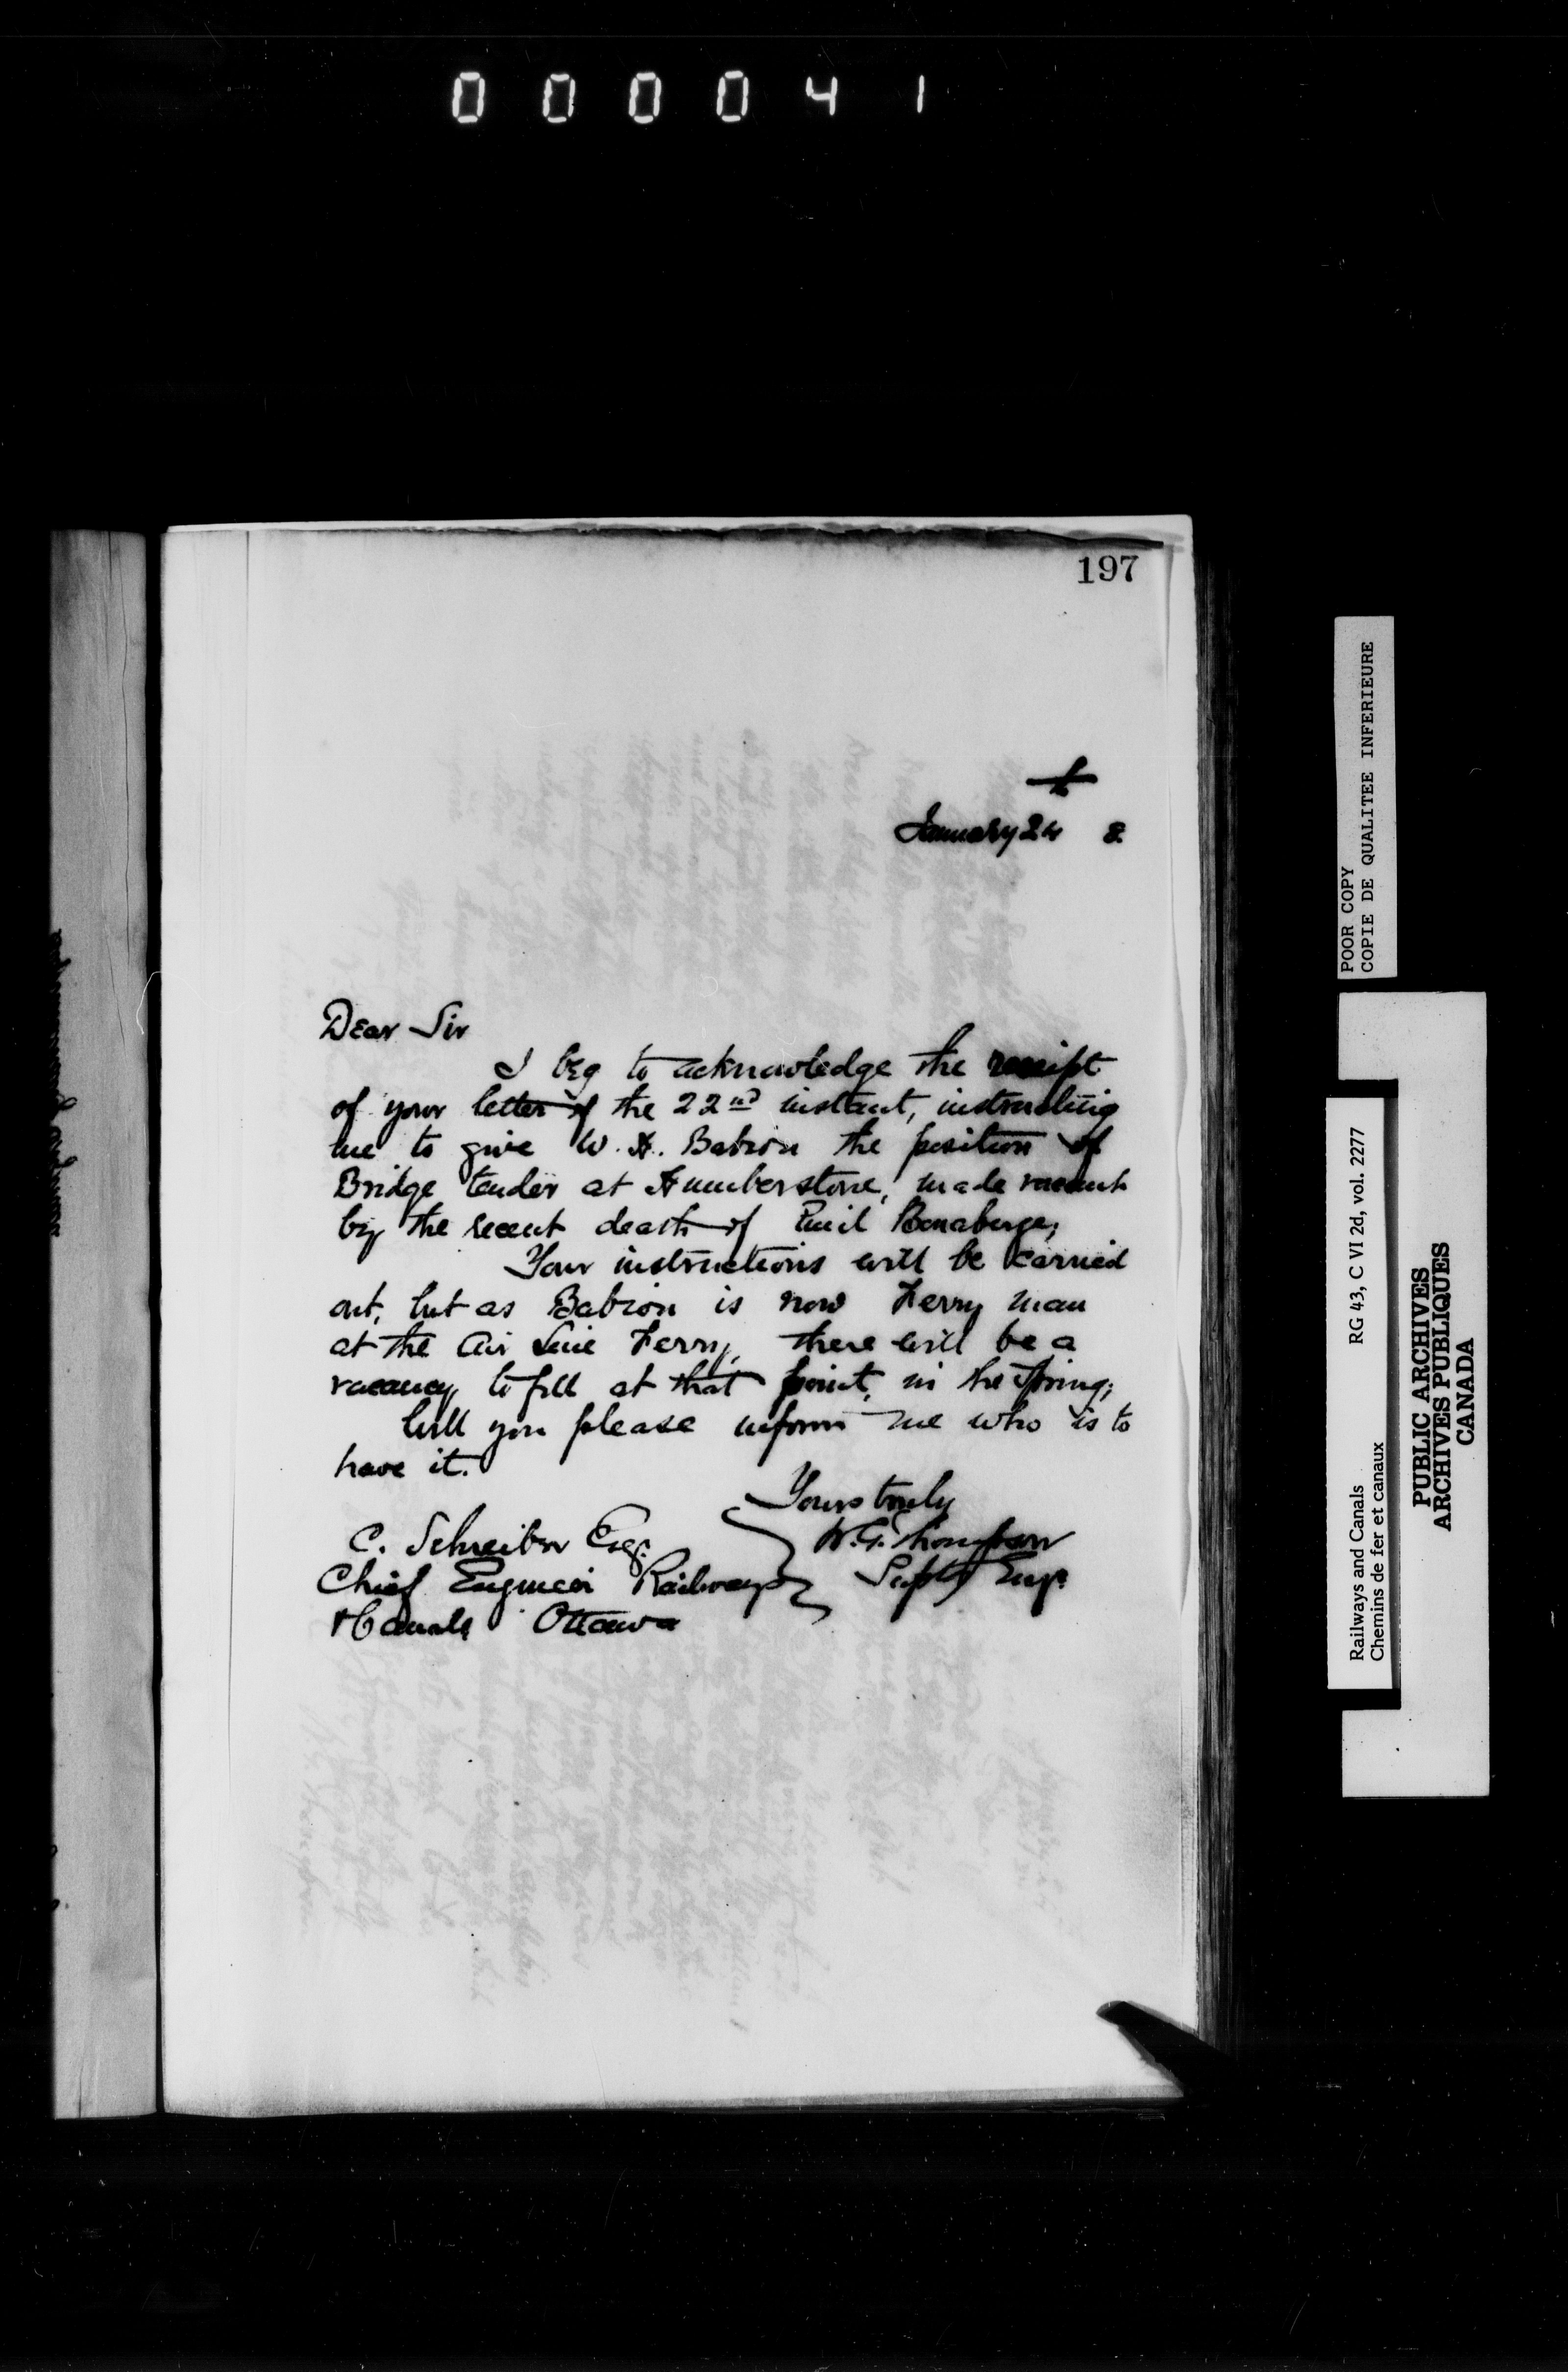 000041
197
January 24th 8.
Dear Sir
I beg to acknowledge the receipt
of your letter of the 22nd instant, instructing
me to give W. H. Babion the position of
Bridge tender at Humberstone, made vacant
by the recent death of Emil
Your instructions will be carried
out, but as Babion is now Ferry man
at the Air Line Ferry, there will be a
vacancy to fill at that point, in the Spring;
Will you please inform me who is to
have it.
Yours truly
W.G. Thompson
Suptg Engr
C. Schreiber Esqr.
Chief Engineer Railways
& Canals Ottawa
POOR COPY
COPIE DE QUALITEE INFERIEURE
Railways and Canals RG 43, C VI 2d, vol. 2277
Chemins de fer et canaux
PUBLIC ARCHIVES
ARCHIVES PUBLIQUES
CANADA